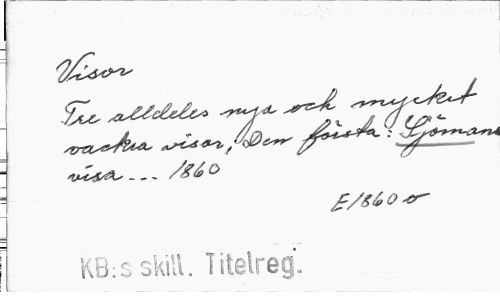 Visor
Tre alldeles nya och mycket
vackra visor, Den första: Sjömans
visa --- 1860
E1860 v
KB:s skill. Titelreg.